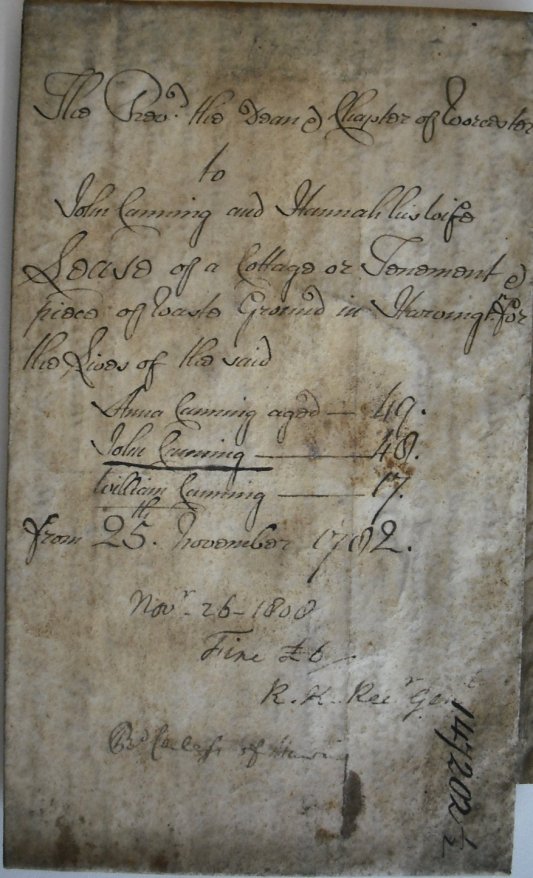 The Revd. the Dean & Chapter of Worcester
to
John Canning and Hannah his wife
Lease of a Cottage or Tenement &
piece of Waste Ground in Harvingt. for
the Lives of the said
Anna Canning aged — 49.
John Canning — 48.
William Canning — 17.
from 25th. November 1782.
Novr. 26 - 1808
Fine £6
R. K. Recr. Genl
of
14202 1/2